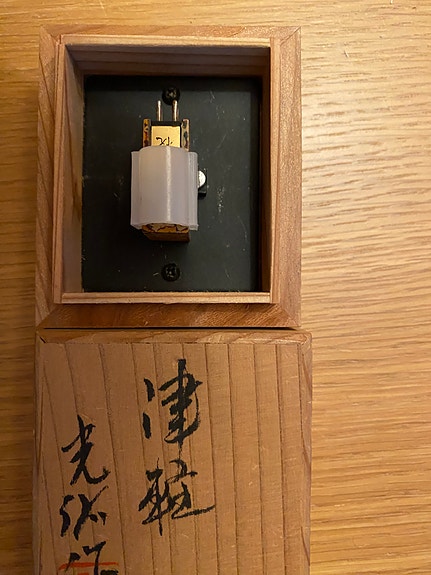 津軽
光悦作